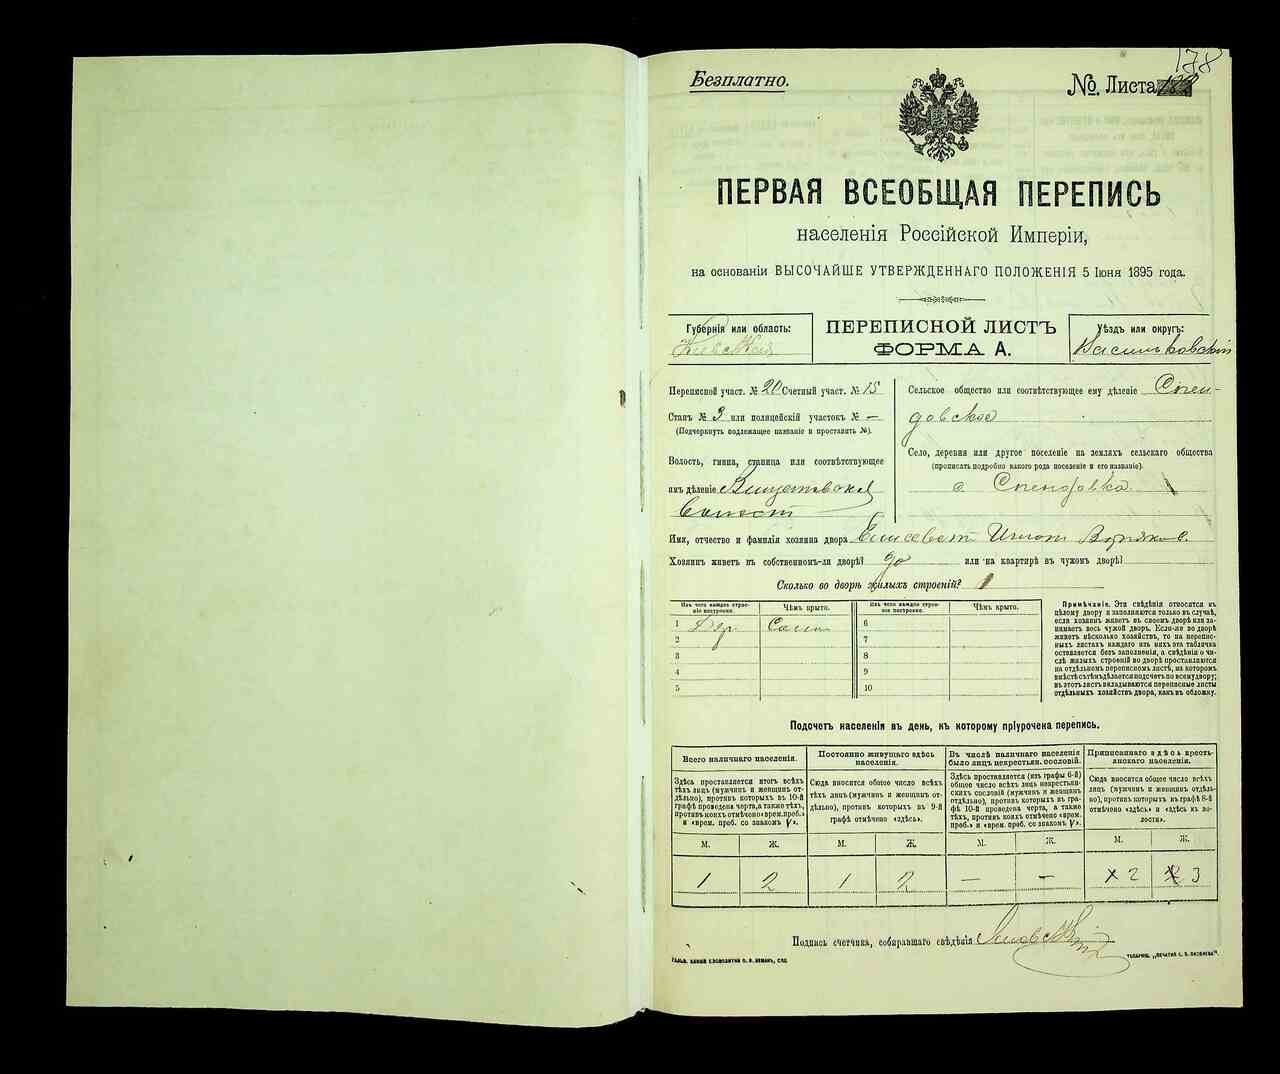 178
Безплатно.
№. Листа
ПЕРВАЯ ВСЕОБЩАЯ ПЕРЕПИСЬ
населенія Россійской Имперіи,
на основаніи ВЫСОЧАЙШЕ УТВЕРЖДЕННАГО ПОЛОЖЕНІЯ 5 Іюня 1895 года.
Губернія или область:
Кіевская
ПЕРЕПИСНОЙ ЛИСТЪ
ФОРМА А.
Уѣздъ или округъ:
Васильковскій
Переписной участ. № 20 Счетный участ. № 15
Станъ № 3 или полицейскій участокъ № —
(Подчеркнуть подлежащее названіе и проставить №).
Волость, гмина, станица или соотвѣтствующее
имъ дѣленіе
Сельское общество или соотвѣтствующее ему дѣленіе Спен-
довское
Село, деревня или другое поселеніе на земляхъ сельскаго общества
(прописать подробно какого рода поселеніе и его названіе).
с. Спендовка
Имя, отчество и фамилія хозяина двора
Хозяинъ живетъ въ собственномъ-ли дворѣ? да или на квартирѣ въ чужомъ дворѣ?
Сколько во дворѣ жилыхъ строеній? 1
Изъ чего каждое строе-
ніе построено.
Чѣмъ крыто.
1 Дер. Солом
2
3
4
5
Изъ чего каждое строе-
ніе построено.
Чѣмъ крыто.
6
7
8
9
10
Примѣчаніе. Эти свѣдѣнія относятся къ
цѣлому двору и заполняются только въ случаѣ,
если хозяинъ живетъ въ своемъ дворѣ или за-
нимаетъ весь чужой дворъ. Если-же во дворѣ
живетъ нѣсколько хозяйствъ, то на перепис-
ныхъ листахъ каждаго изъ нихъ эта табличка
оставляется безъ заполненія, а свѣдѣнія о чи-
слѣ жилыхъ строеній во дворѣ проставляются
на отдѣльномъ переписномъ листѣ, на которомъ
вмѣстѣ съ тѣмъ дѣлается подсчетъ по всему двору;
въ этотъ листъ вкладываются переписные листы
отдѣльныхъ хозяйствъ двора, какъ въ обложку.
Подсчетъ населенія въ день, къ которому пріурочена перепись.
Всего наличнаго населенія.
Здѣсь проставляется итогъ всѣхъ
тѣхъ лицъ (мужчинъ и женщинъ от-
дѣльно), противъ которыхъ въ 10-й
графѣ проведена черта, а также тѣхъ,
противъ коихъ отмѣчено «врем. преб.»
и «врем. преб. со знакомъ V».
М. Ж.
1 2
Постоянно живущаго здѣсь
населенія.
Сюда вносится общее число всѣхъ
тѣхъ лицъ (мужчинъ и женщинъ от-
дѣльно), противъ которыхъ въ 9-й
графѣ отмѣчено «здѣсь».
М. Ж.
1 2
Въ числѣ наличнаго населенія
было лицъ некрестьян. сословій.
Здѣсь проставляется (изъ графы 6-й)
общее число всѣхъ лицъ некрестьян-
скихъ сословій (мужчинъ и женщинъ
отдѣльно), противъ которыхъ въ гра-
фѣ 10-й проведена черта, а также
тѣхъ, противъ коихъ отмѣчено «врем.
преб.» и «врем. преб. со знакомъ V».
М. Ж.
— —
Приписаннаго здѣсь кресть-
янскаго населенія.
Сюда вносится общее число всѣхъ
лицъ (мужчинъ и женщинъ отдѣль-
но), противъ которыхъ въ графѣ 8-й
отмѣчено «здѣсь» и «здѣсь къ во-
лости».
М. Ж.
2 3
Подпись счетчика, собиравшаго свѣдѣнія